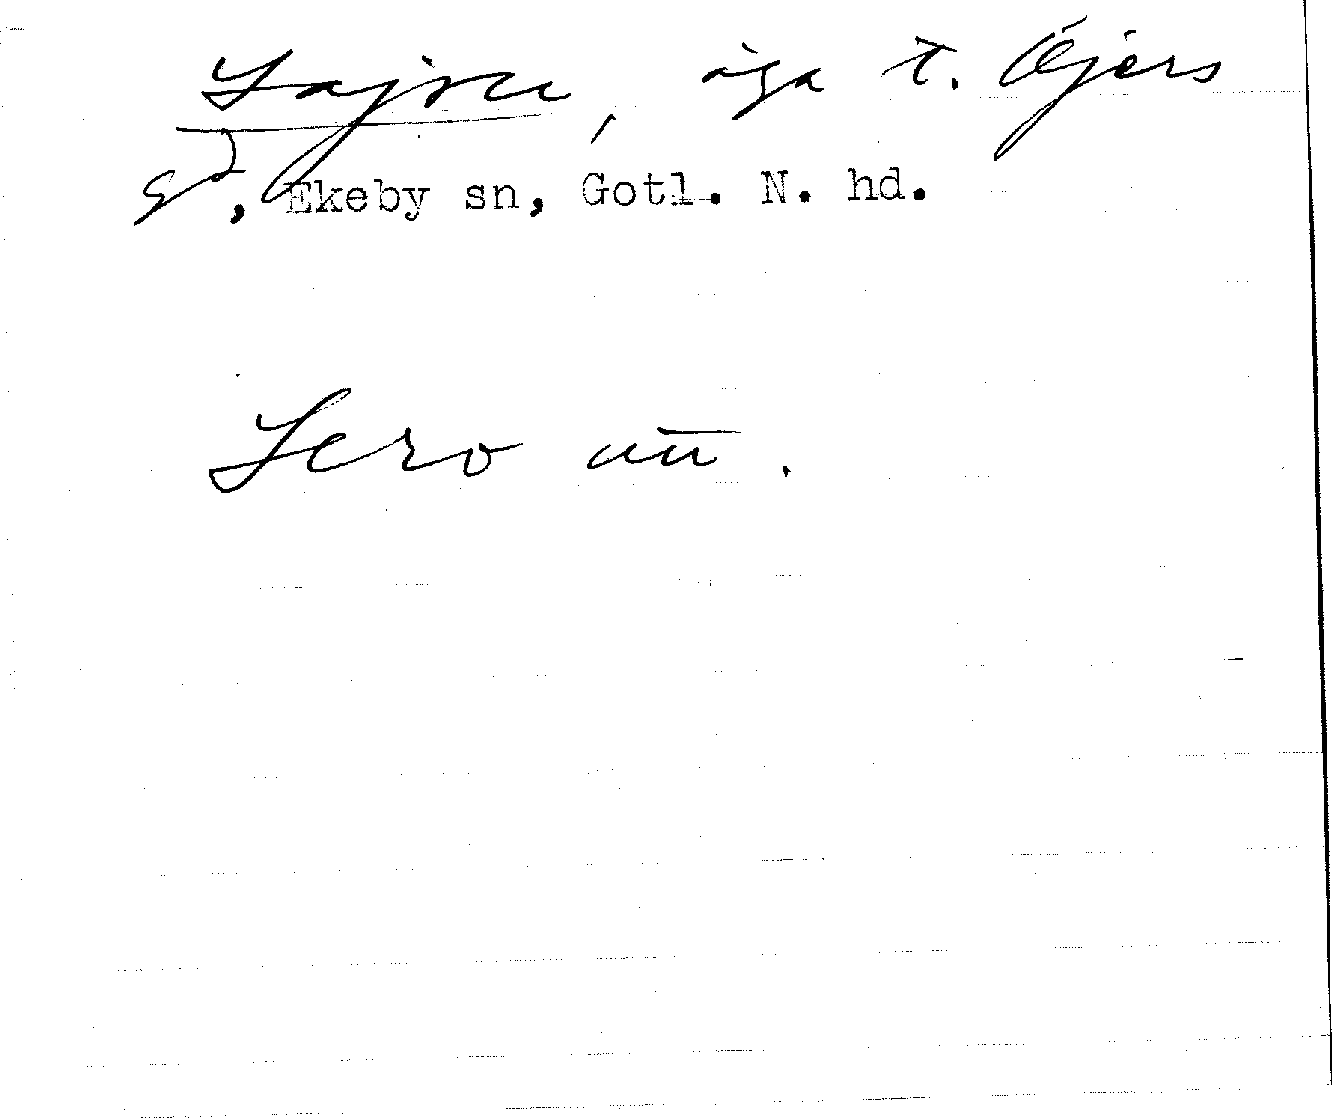 Lajsu, äga t. Öjers
gd, Ekeby sn, Gotl. N. hd.
Lero un.